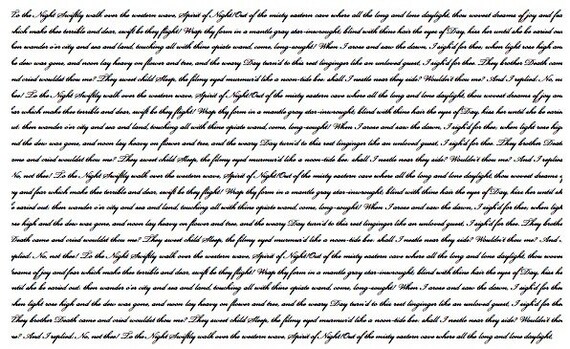 To the Night Swiftly walk over the western wave, Spirit of Night!Out of the misty eastern cave where all the long and lone daylight, thou wovest dreams of joy and
which make thee terrible and dear, swift be they flight! Wrap thy form in a mantle gray star-inwrought, blind with thine hair the eyes of Day, kiss her until she be caried
then wander o'er city and sea and land, touching all with thine opiate wand, come, long-sought! When I arose and saw the dawn, I sigh'd for thee. when light rose high an
he dew was gone, and noon lay heavy on flower and tree, and the weary Day turn'd to this rest linginger like an unloved guest, I sigh'd for thee. They brother Death came
nd cried wouldst thou me? They sweet child Sleep, the filmy eyed murmur'd like a noon-tide bee. shall I nestle near they side? Wouldn't thou me? And I replied. No, no
hee! To the Night Swiftly walk over the western wave, Spirit of Night!Out of the misty eastern cave where all the long and lone daylight, thou wovest dreams of joy an
ear which make thee terrible and dear, swift be they flight! Wrap thy form in a mantle gray star-inwrought, blind with thine hair the eyes of Day, kiss her until she be caried
ut. then wander o'er city and sea and land, touching all with thine opiate wand, come, long-sought! When I arose and saw the dawn, I sigh'd for thee. when light rose high
nd the dew was gone, and noon lay heavy on flower and tree, and the weary Day turn'd to this rest linginger like an unloved guest, I sigh'd for thee. They brother Death
ame and cried wouldst thou me? They sweet child Sleep, the filmy eyed murmur'd like a noon-tide bee. shall I nestle near they side? Wouldn't thou me? And I replied
No, not thee! To the Night Swiftly walk over the western wave, Spirit of Night!Out of the misty eastern cave where all the long and lone daylight, thou wovest dreams
y and fear which make thee terrible and dear, swift be they flight! Wrap thy form in a mantle gray star-inwrought, blind with thine hair the eyes of Day, kiss her until sh
e caried out. then wander o'er city and sea and land, touching all with thine opiate wand, come, long-sought! When I arose and saw the dawn, I sigh'd for thee. when light
se high and the dew was gone, and noon lay heavy on flower and tree, and the weary Day turn'd to this rest linginger like an unloved guest, I sigh'd for thee. They brothe
Death came and cried wouldst thou me? They sweet child Sleep, the filmy eyed murmur'd like a noon-tide bee. shall I nestle near they side? Wouldn't thou me? And
eplied. No, not thee! To the Night Swiftly walk over the western wave, Spirit of Night!Out of the misty eastern cave where all the long and lone daylight, thou woves
reams of joy and fear which make thee terrible and dear, swift be they flight! Wrap thy form in a mantle gray star-inwrought, blind with thine hair the eyes of Day, kiss h
ntil she be caried out. then wander o'er city and sea and land, touching all with thine opiate wand, come, long-sought! When I arose and saw the dawn, I sigh'd for thee.
hen light rose high and the dew was gone, and noon lay heavy on flower and tree, and the weary Day turn'd to this rest linginger like an unloved guest, I sigh'd for the
They brother Death came and cried wouldst thou me? They sweet child Sleep, the filmy eyed murmur'd like a noon-tide bee. shall I nestle near they side? Wouldn't tho
me? And I replied. No, not thee! To the Night Swiftly walk over the western wave, Spirit of Night!Out of the misty eastern cave where all the long and lone daylight,